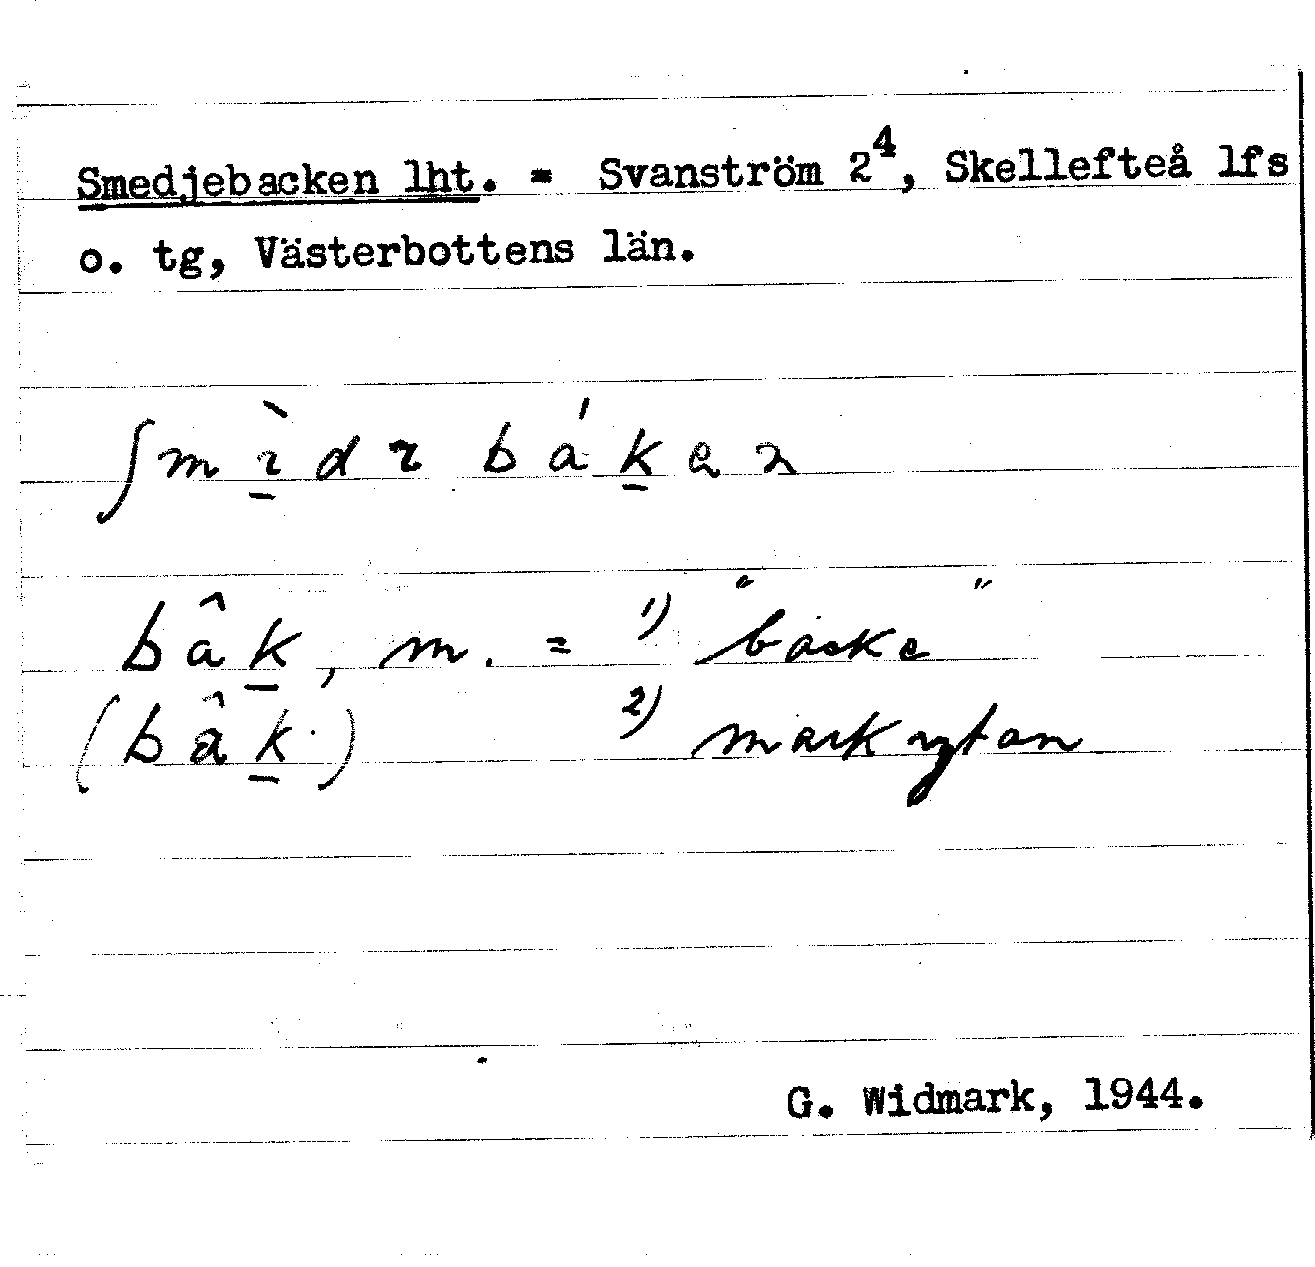 Smedjebacken lht. = Svanström 2⁴, Skellefteå lfs
o. tg, Västerbottens län.
ʃmı̱̀dı báḵen
bâḵ, m. = 1) "backe"
(bâḵ·) 2) markytan
G. Widmark, 1944.